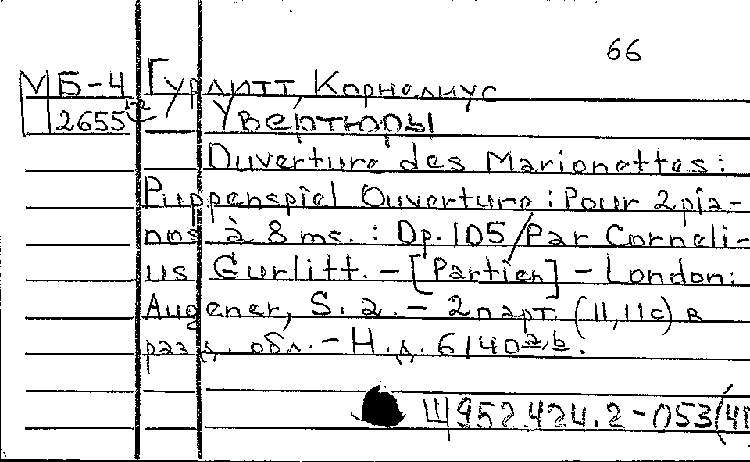 66
МБ-4 Гурлитт, Корнелиус
2655 Увертюры
Ouverture des Marionettes:
Puppenspiel Ouverture: Pour 2 pia-
nos à 8 ms.: Op. 105/Par Corneli-
us Gurlitt. - [Partien] - London:
Augener, S. a. - 2 парт. (11, 11 с) в
разд. обл. - Н.д. 6140 a,b.
Щ952.424.2-053(41